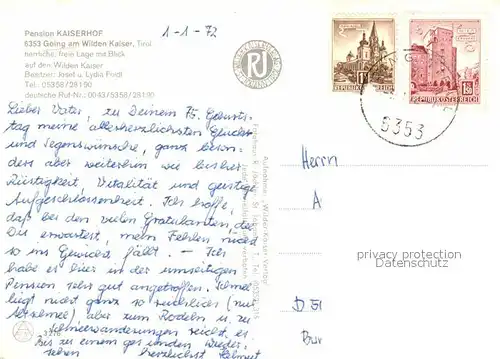 Pension KAISERHOF
6353 Going am Wilden Kaiser, Tirol
herrliche, freie Lage mit Blick
auf den Wilden Kaiser
Besitzer: Josef u. Lydia Foidl
Tel. 05358/28190
deutsche Ruf-Nr.: 0043/5358/28190
1-1-72
RJ
REPUBLIK ÖSTERREICH
REPUBLIK ÖSTERREICH
6353
Lieber Vater, zu Deinem 75. Geburts-
tag meine allerherzlichsten Glück-
und Segenswünsche, ganz beson-
ders aber weiterhin wie bisher
Rüstigkeit, Vitalität und geistige
Aufgeschlossenheit. Ich hoffe,
daß bei den vielen Gratulanten, die
Du erwartest, mein Fehlen nicht
so ins Gewicht fällt. – Ich
habe es hier in der umseitigen
Pension sehr gut angetroffen. Schnee
liegt nicht ganz so reichlich (nur
), aber zum Rodeln u. zu
Schneewanderungen reicht es.
Bis zu einem gesunden Wieder-
sehen herzlichst Helmut
Herrn
A
D 51
Bur
privacy protection
Datenschutz